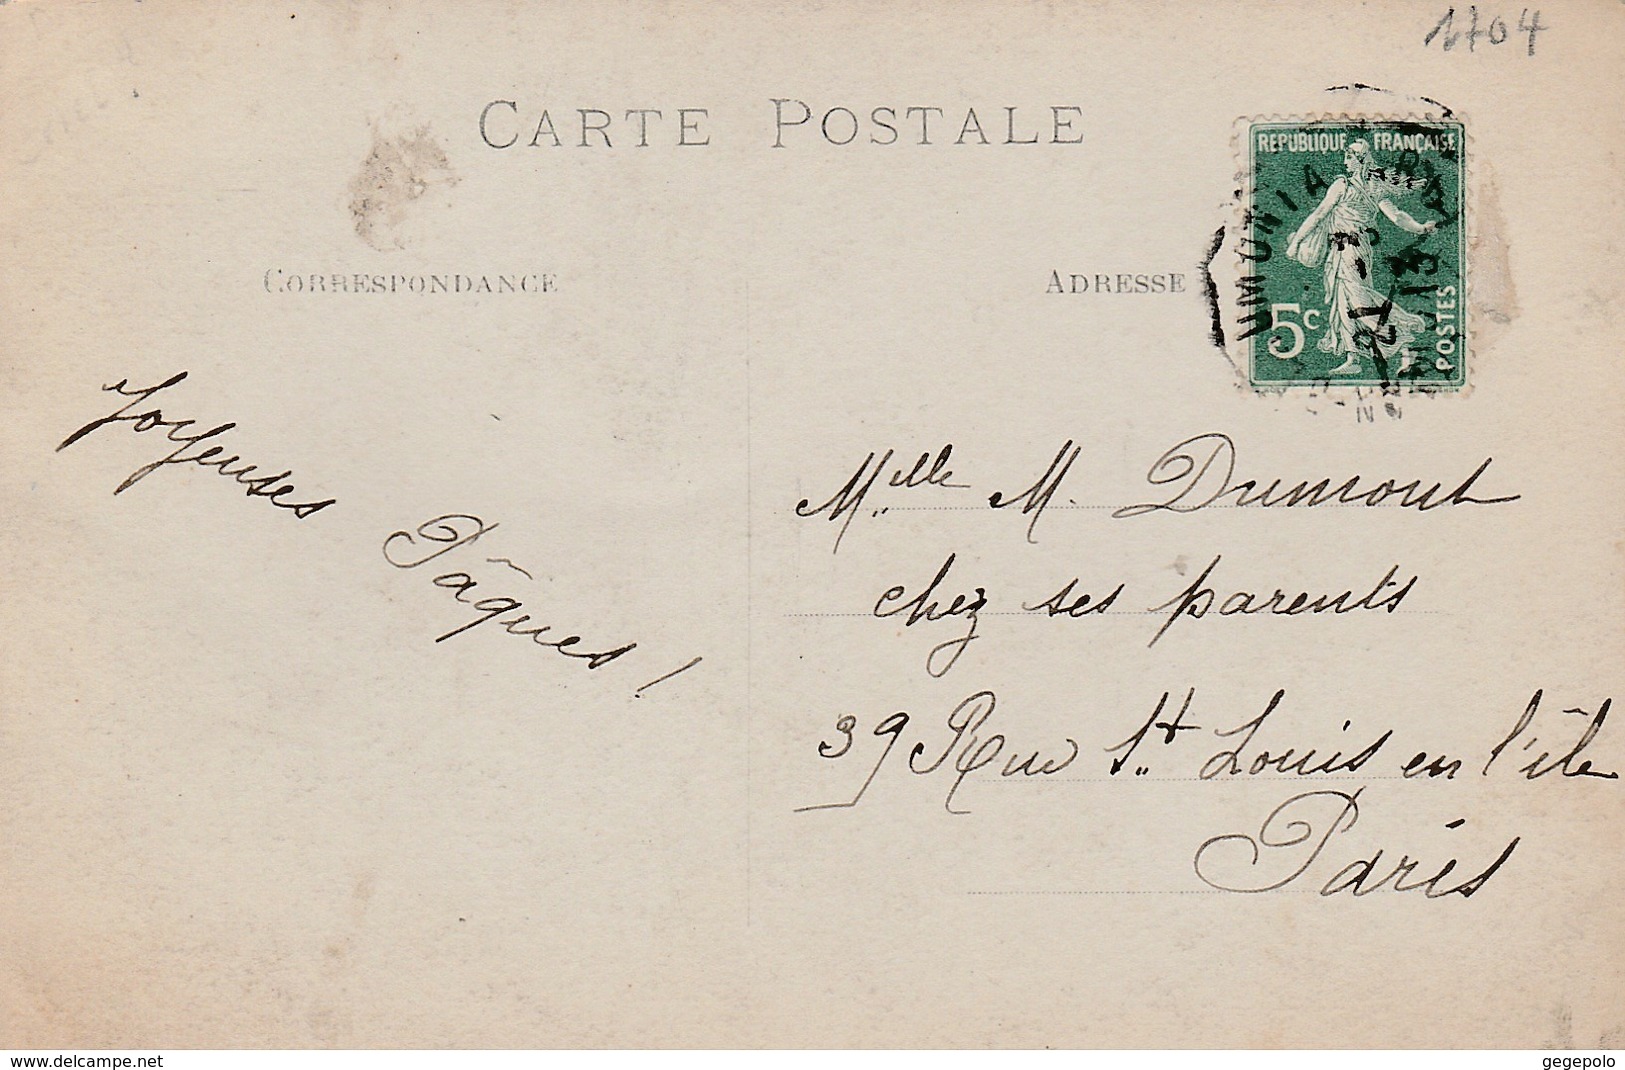 1704
CARTE POSTALE
REPUBLIQUE FRANÇAISE
5c
POSTES
CORRESPONDANCE
ADRESSE
Joyeuses
Pâques !
Melle M. Dumont
chez ses parents
39 Rue St Louis en l'île
Paris
www.delcampe.net
gegepolo